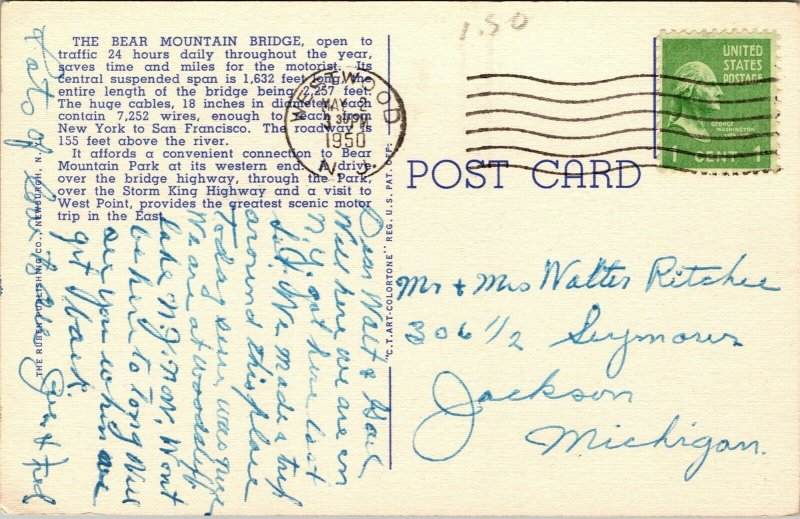 1.50
THE BEAR MOUNTAIN BRIDGE, open to
traffic 24 hours daily throughout the year,
saves time and miles for the motorist. Its
central suspended span is 1,632 feet long, the
entire length of the bridge being 2,257 feet.
The huge cables, 18 inches in diameter, each
contain 7,252 wires, enough to reach from
New York to San Francisco. The roadway is
155 feet above the river.
It affords a convenient connection to Bear
Mountain Park at its western end. A drive
over the bridge highway, through the Park,
over the Storm King Highway and a visit to
West Point, provides the greatest scenic motor
trip in the East.
WESTWOOD
MAY 2
30 PM
1950
N.J.
UNITED
STATES
POSTAGE
GEORGE
WASHINGTON
1 CENT 1
POST CARD
THE RUBEN PUBLISHING CO., NEWBURGH, N.Y.
"C.T. ART-COLORTONE" REG. U.S. PAT. OFF.
Dear Walt &
Well here we are in
N.Y. got here last
We made a trip
around this place
Today sure was nice
We are at Woodcliff
Lake N.J. now. Wont
be here to long Will
see you when we
get back.
Lots of Love to
& Fred
Mr + Mrs Walter Ritchie
306 1/2 Seymour
Jackson
Michigan.